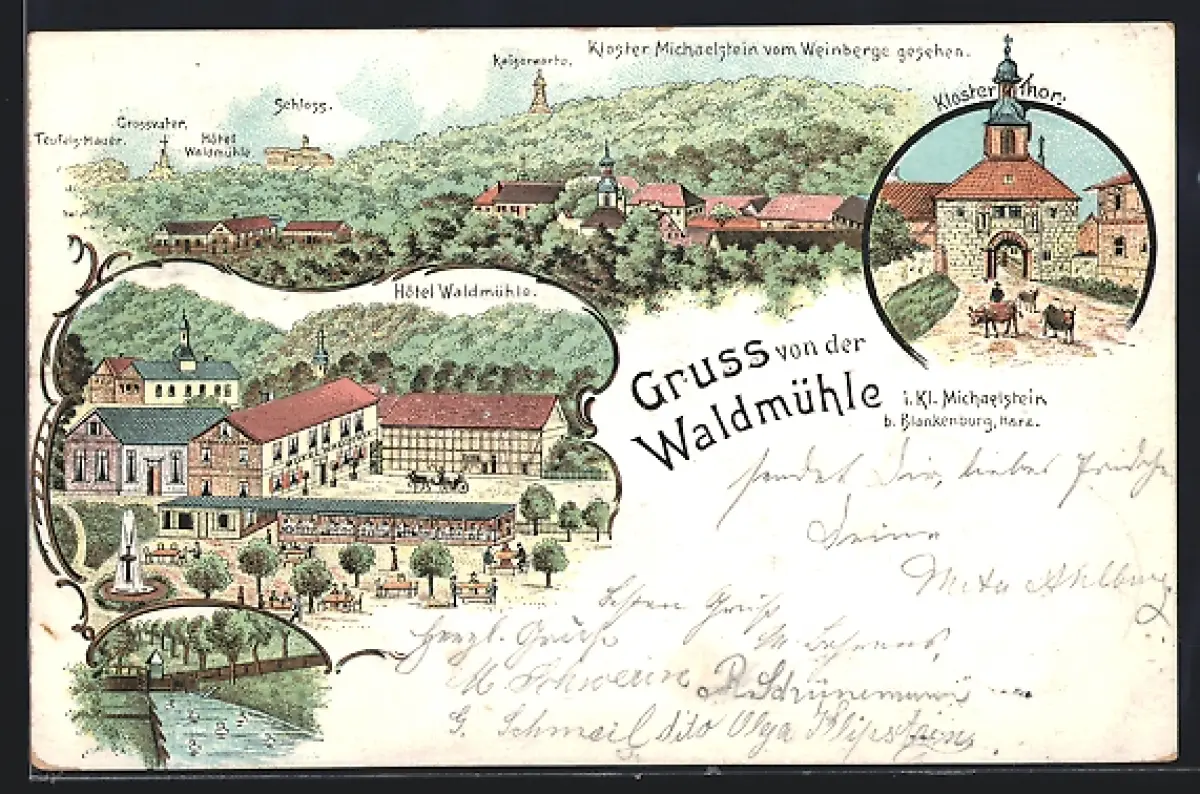 Kloster Michaelstein vom Weinberge gesehen.
Kaiserwarte.
Schloss.
Grossvater.
Teufels-Mauer.
Hôtel
Waldmühle
Kloster Thor.
Hôtel Waldmühle.
Gruss von der
Waldmühle
i. Kl. Michaelstein
b. Blankenburg, Harz.
sendet Dir, liebes
Deine
Meta Ahlburg
Besten Gruß
Herzl. Grüße
M. Behrens,
M Schwerin
G. Schmeil dito Olga Klipstein